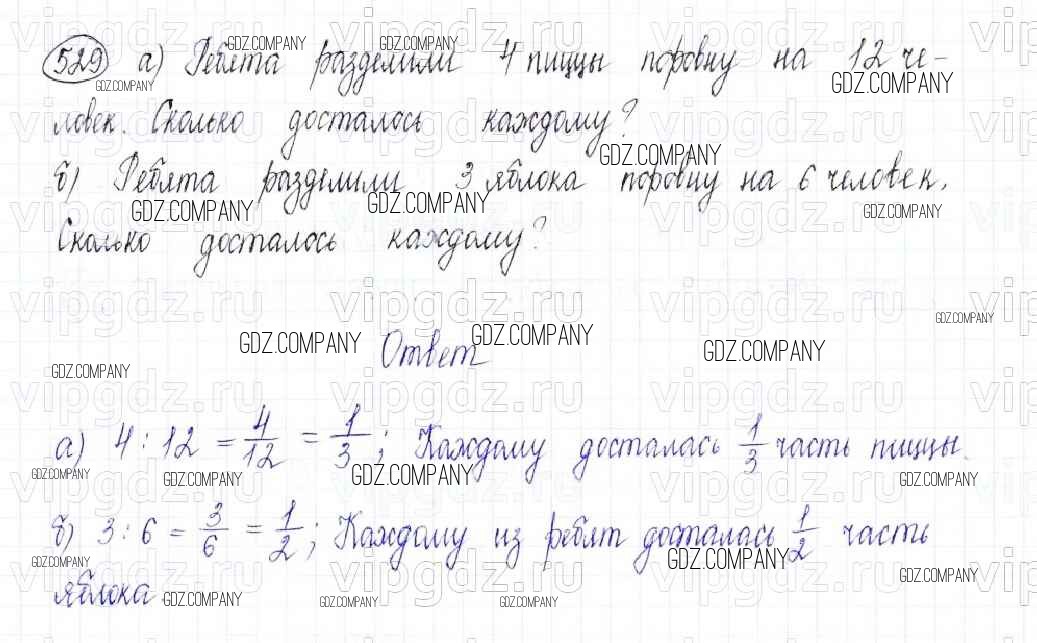 529 а) Ребята разделили 4 пиццы поровну на 12 че-
ловек. Сколько досталось каждому?
б) Ребята разделили 3 яблока поровну на 6 человек.
Сколько досталось каждому?
Ответ
а) 4 : 12 = 4/12 = 1/3; Каждому досталась 1/3 часть пиццы.
б) 3 : 6 = 3/6 = 1/2; Каждому из ребят досталась 1/2 часть
яблока.